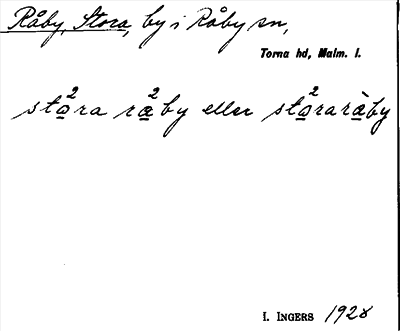 Råby, Stora, by i Råby sn,
Torna hd, Malm. l.
sto²ra rå²by eller sto²raràby
I. INGERS 1928